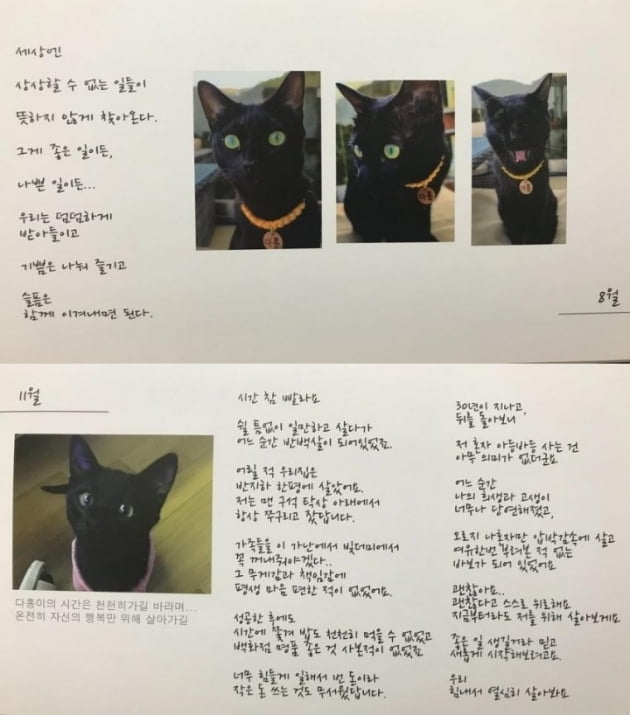 세상엔
상상할 수 없는 일들이
뜻하지 않게 찾아온다.
그게 좋은 일이든,
나쁜 일이든...
우리는 덤덤하게
받아들이고
기쁨은 나눠 즐기고
슬픔은
함께 이겨내면 된다.
다홍
8월
11월
다홍이의 시간은 천천히가길 바라며...
온전히 자신의 행복만 위해 살아가길
시간 참 빨라요
쉴 틈없이 일만하고 살다가
어느 순간 반백살이 되어있었죠.
어릴 적 우리집은
반지하 한평에 살았어요.
저는 맨 구석 탁상 아래에서
항상 쭈구리고 잤답니다.
가족들을 이 가난에서 빚더미에서
꼭 꺼내줘야겠다..
그 무게감과 책임감에
평생 마음 편한 적이 없었어요.
성공한 후에도
시간에 쫓겨 밥도 천천히 먹을 수 없었고
백화점 명품 좋은 것 사본적이 없었죠
너무 힘들게 일해서 번 돈이라
작은 돈 쓰는 것도 무서웠답니다.
30년이 지나고,
뒤를 돌아보니
저 혼자 아등바등 사는 건
아무 의미가 없더군요
어느 순간
나의 희생과 고생이
너무나 당연해졌고,
오로지 나혼자만 압박감속에 살고
여유한번 부려본 적 없는
바보가 되어 있었어요
괜찮아요..
괜찮다고 스스로 위로해요
지금부터라도 저를 위해 살아보게요
좋은 일 생길거라 믿고
새롭게 시작해보려고요.
우리
힘내서 열심히 살아봐요